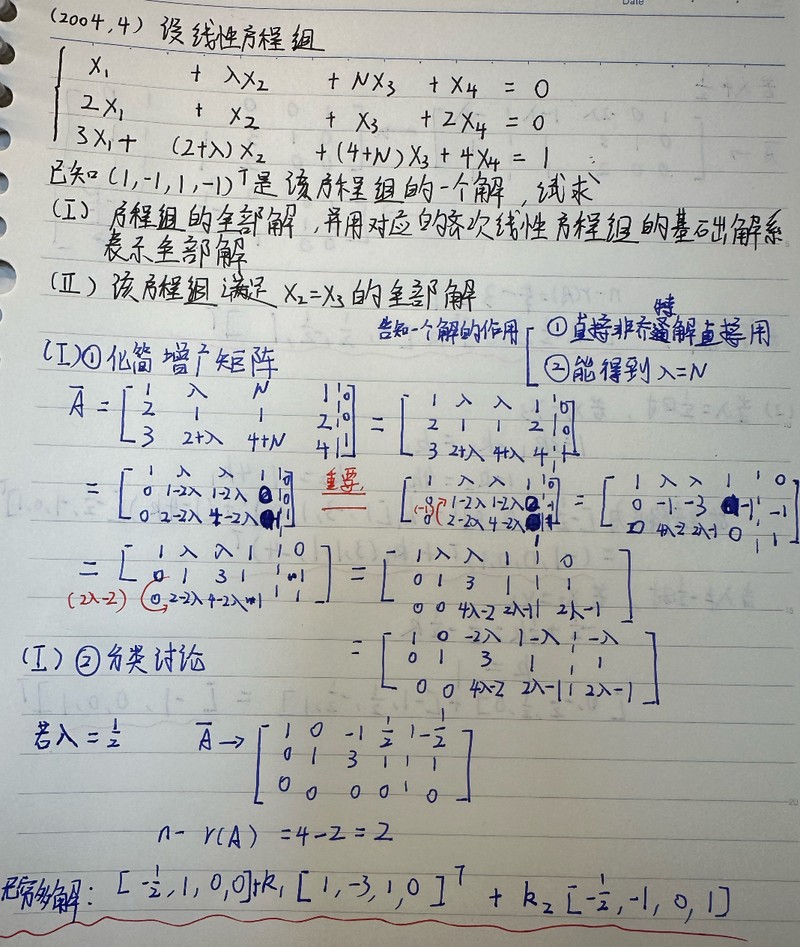 (2004,4) 设线性方程组
x₁ + λx₂ + Nx₃ + x₄ = 0
2x₁ + x₂ + x₃ + 2x₄ = 0
3x₁ + (2+λ)x₂ + (4+N)x₃ + 4x₄ = 1
已知(1,-1,1,-1)ᵀ是该方程组的一个解,试求
(Ⅰ) 方程组的全部解,并用对应的齐次线性方程组的基础解系
表示全部解
(Ⅱ) 该方程组满足 x₂=x₃ 的全部解
告知一个解的作用
①直接非齐特解直接用
②能得到 λ=N
(Ⅰ)①化简增广矩阵
Ā = [1 λ N 1 | 0
2 1 1 2 | 0
3 2+λ 4+N 4 | 1]
= [1 λ λ 1 | 0
2 1 1 2 | 0
3 2+λ 4+λ 4 | 1]
= [1 λ λ 1 | 0
0 1-2λ 1-2λ 0 | 0
0 2-2λ 4-2λ 1 | 1]
重要
(-1) [1 λ λ 1 | 0
0 1-2λ 1-2λ
0 2-2λ 4-2λ
= [1 λ λ 1 | 0
0 -1 -3 -1 | -1
0 4λ-2 2λ-1 0
= [1 λ λ 1 | 0
0 1 3 1 | 1
0 2-2λ 4-2λ 1 | 1]
(2λ-2)
= [1 λ λ 1 | 0
0 1 3 1 | 1
0 0 4λ-2 2λ-1 | 2λ-1]
(Ⅰ)②分类讨论
= [1 0 -2λ 1-λ | -λ
0 1 3 1 | 1
0 0 4λ-2 2λ-1 | 2λ-1]
若λ=½ Ā → [1 0 -1 ½ | -½
0 1 3 1 | 1
0 0 0 0 | 0]
n-r(A) = 4-2 = 2
无穷多解: [-½,1,0,0]+k₁[1,-3,1,0]ᵀ + k₂[-½,-1,0,1]